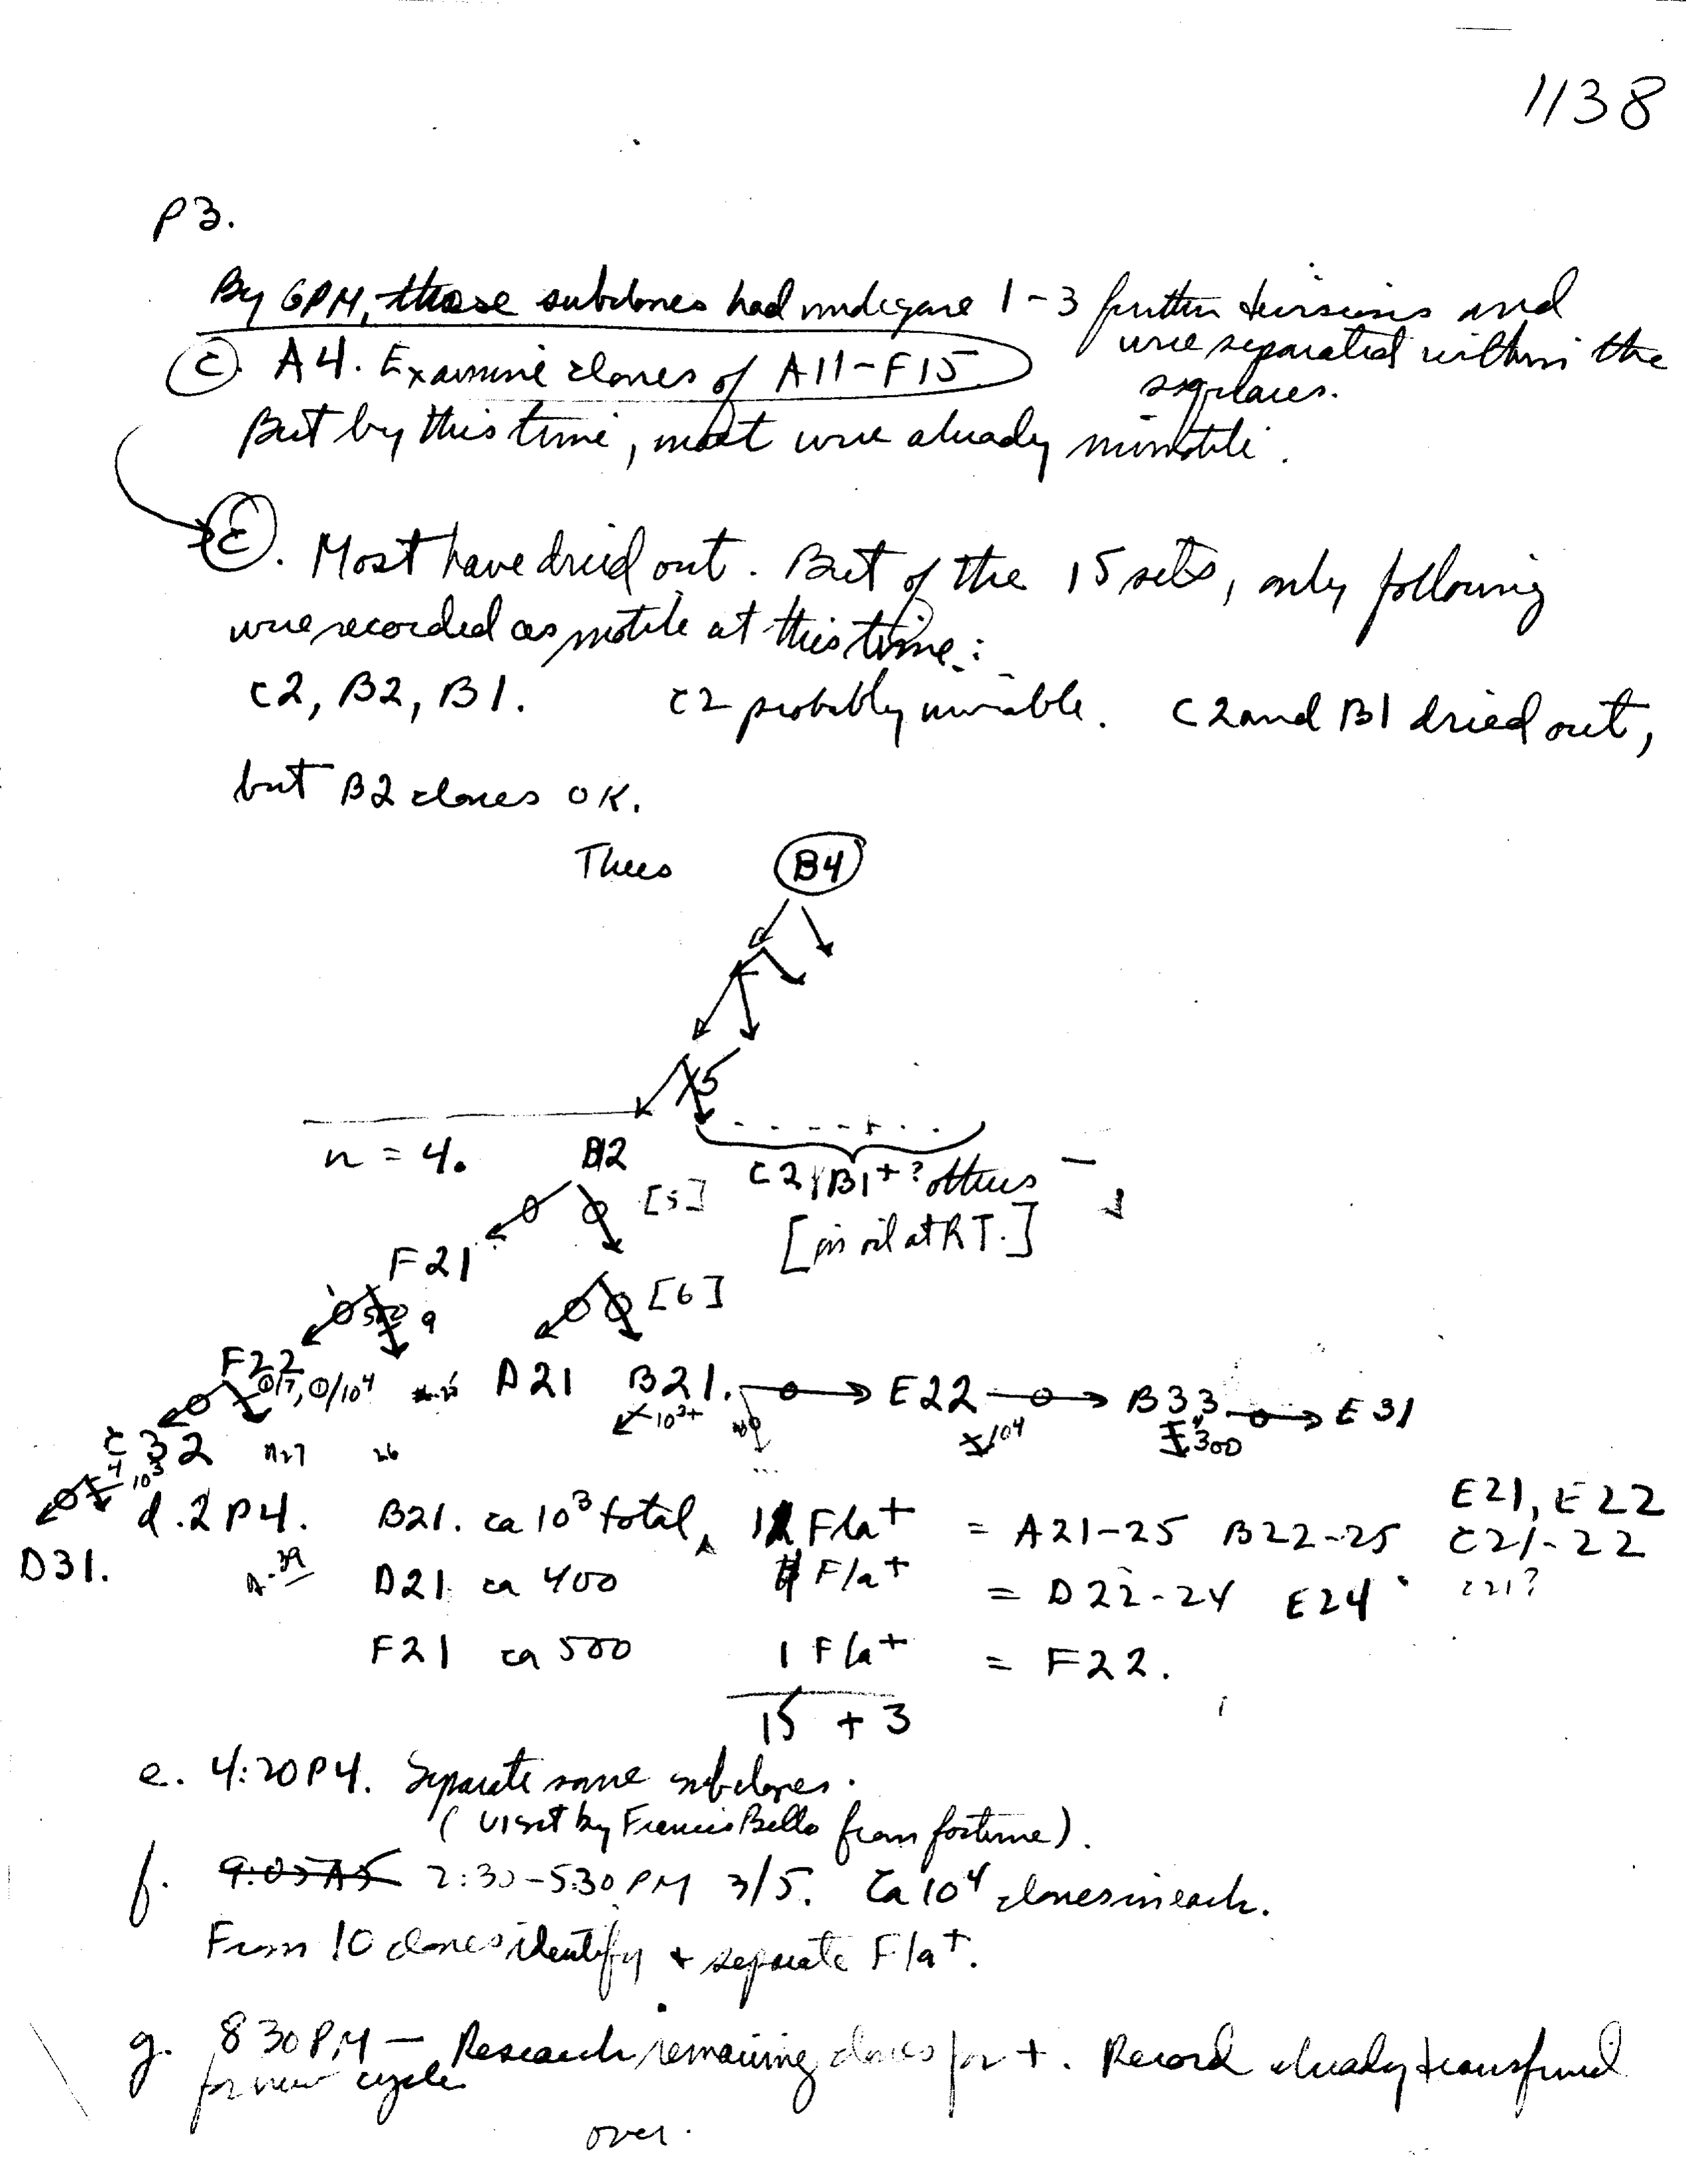 1138
P3.
By 6PM, those subclones had undergone 1-3 further divisions and
were separated within the
C. A4. Examine clones of A11-F15
But by this time, most were already nonmotile.
C. Most have dried out. But of the 15 sets, only following
were recorded as motile at this time:
C2, B2, B1. C2 probably inviable. C2 and B1 dried out,
but B2 clones OK.
Thus B4
X5
n = 4. B12 C2, B1 + ? others
[5] [in oil at RT.]
F21
500 9 [6]
F22
0/7, 0/10⁴ D21 B21. E22 B33 E31
10³+ 10⁴ 300
C32 n27 26
4 10³
d. 2P4. B21. ca 10³ total, 12 Fla+ = A21-25 B22-25 C21-22
E21, E22
D31. n-39 D21 ca 400 4 Fla+ = D22-24 E24 C21?
F21 ca 500 1 Fla+ = F22.
15 + 3
e. 4:20P4. Separate some subclones.
(visit by Francis Bello from fortune).
f. 9:05A5 2:30-5:30 PM 3/5. Ca 10⁴ clones in each.
From 10 clones identify + separate Fla+.
g. 8 30PM — Research remaining clones for +. Record already transferred
for new cycle
over.